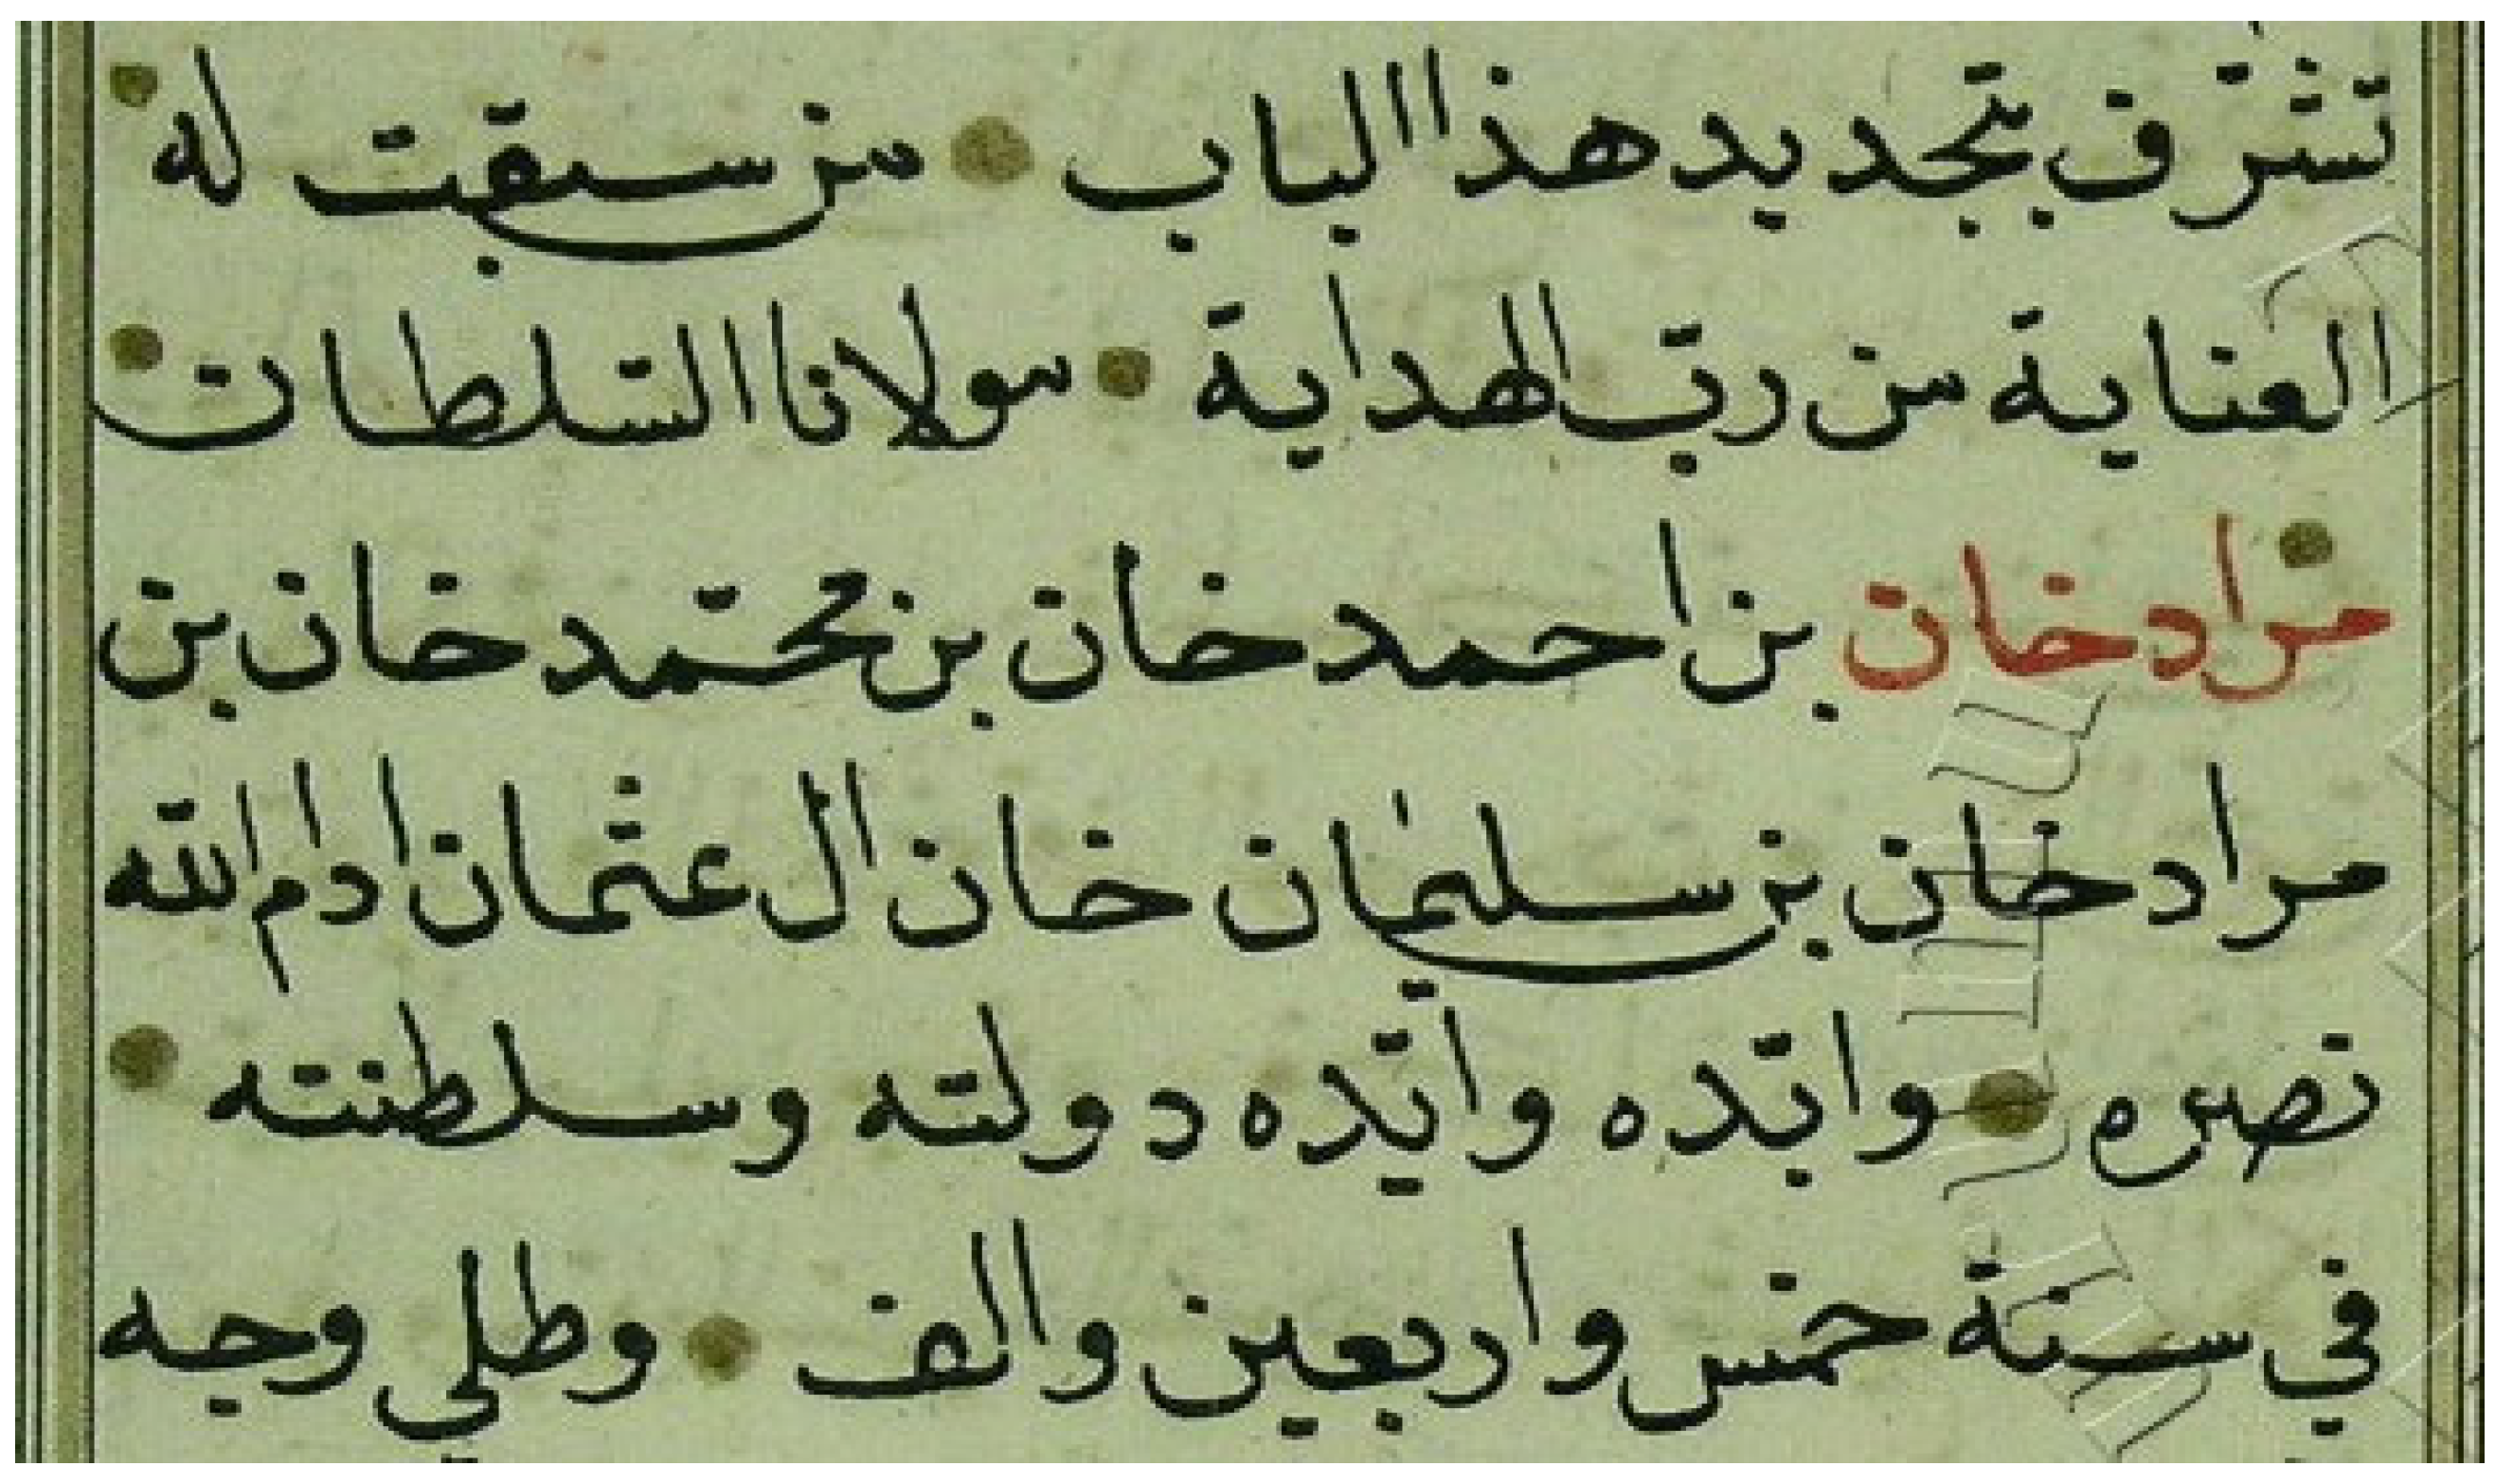 تشرّف بتجديد هذا الباب من سبقت له
العناية من ربّ الهداية مولانا السّلطان
مراد خان بن احمد خان بن محمّد خان بن
مراد خان بن سليمان خان ال عثمان ادام الله
نصره وابّده وايّده دولته وسلطنته
في سنة خمس واربعين والف وطلي وجه